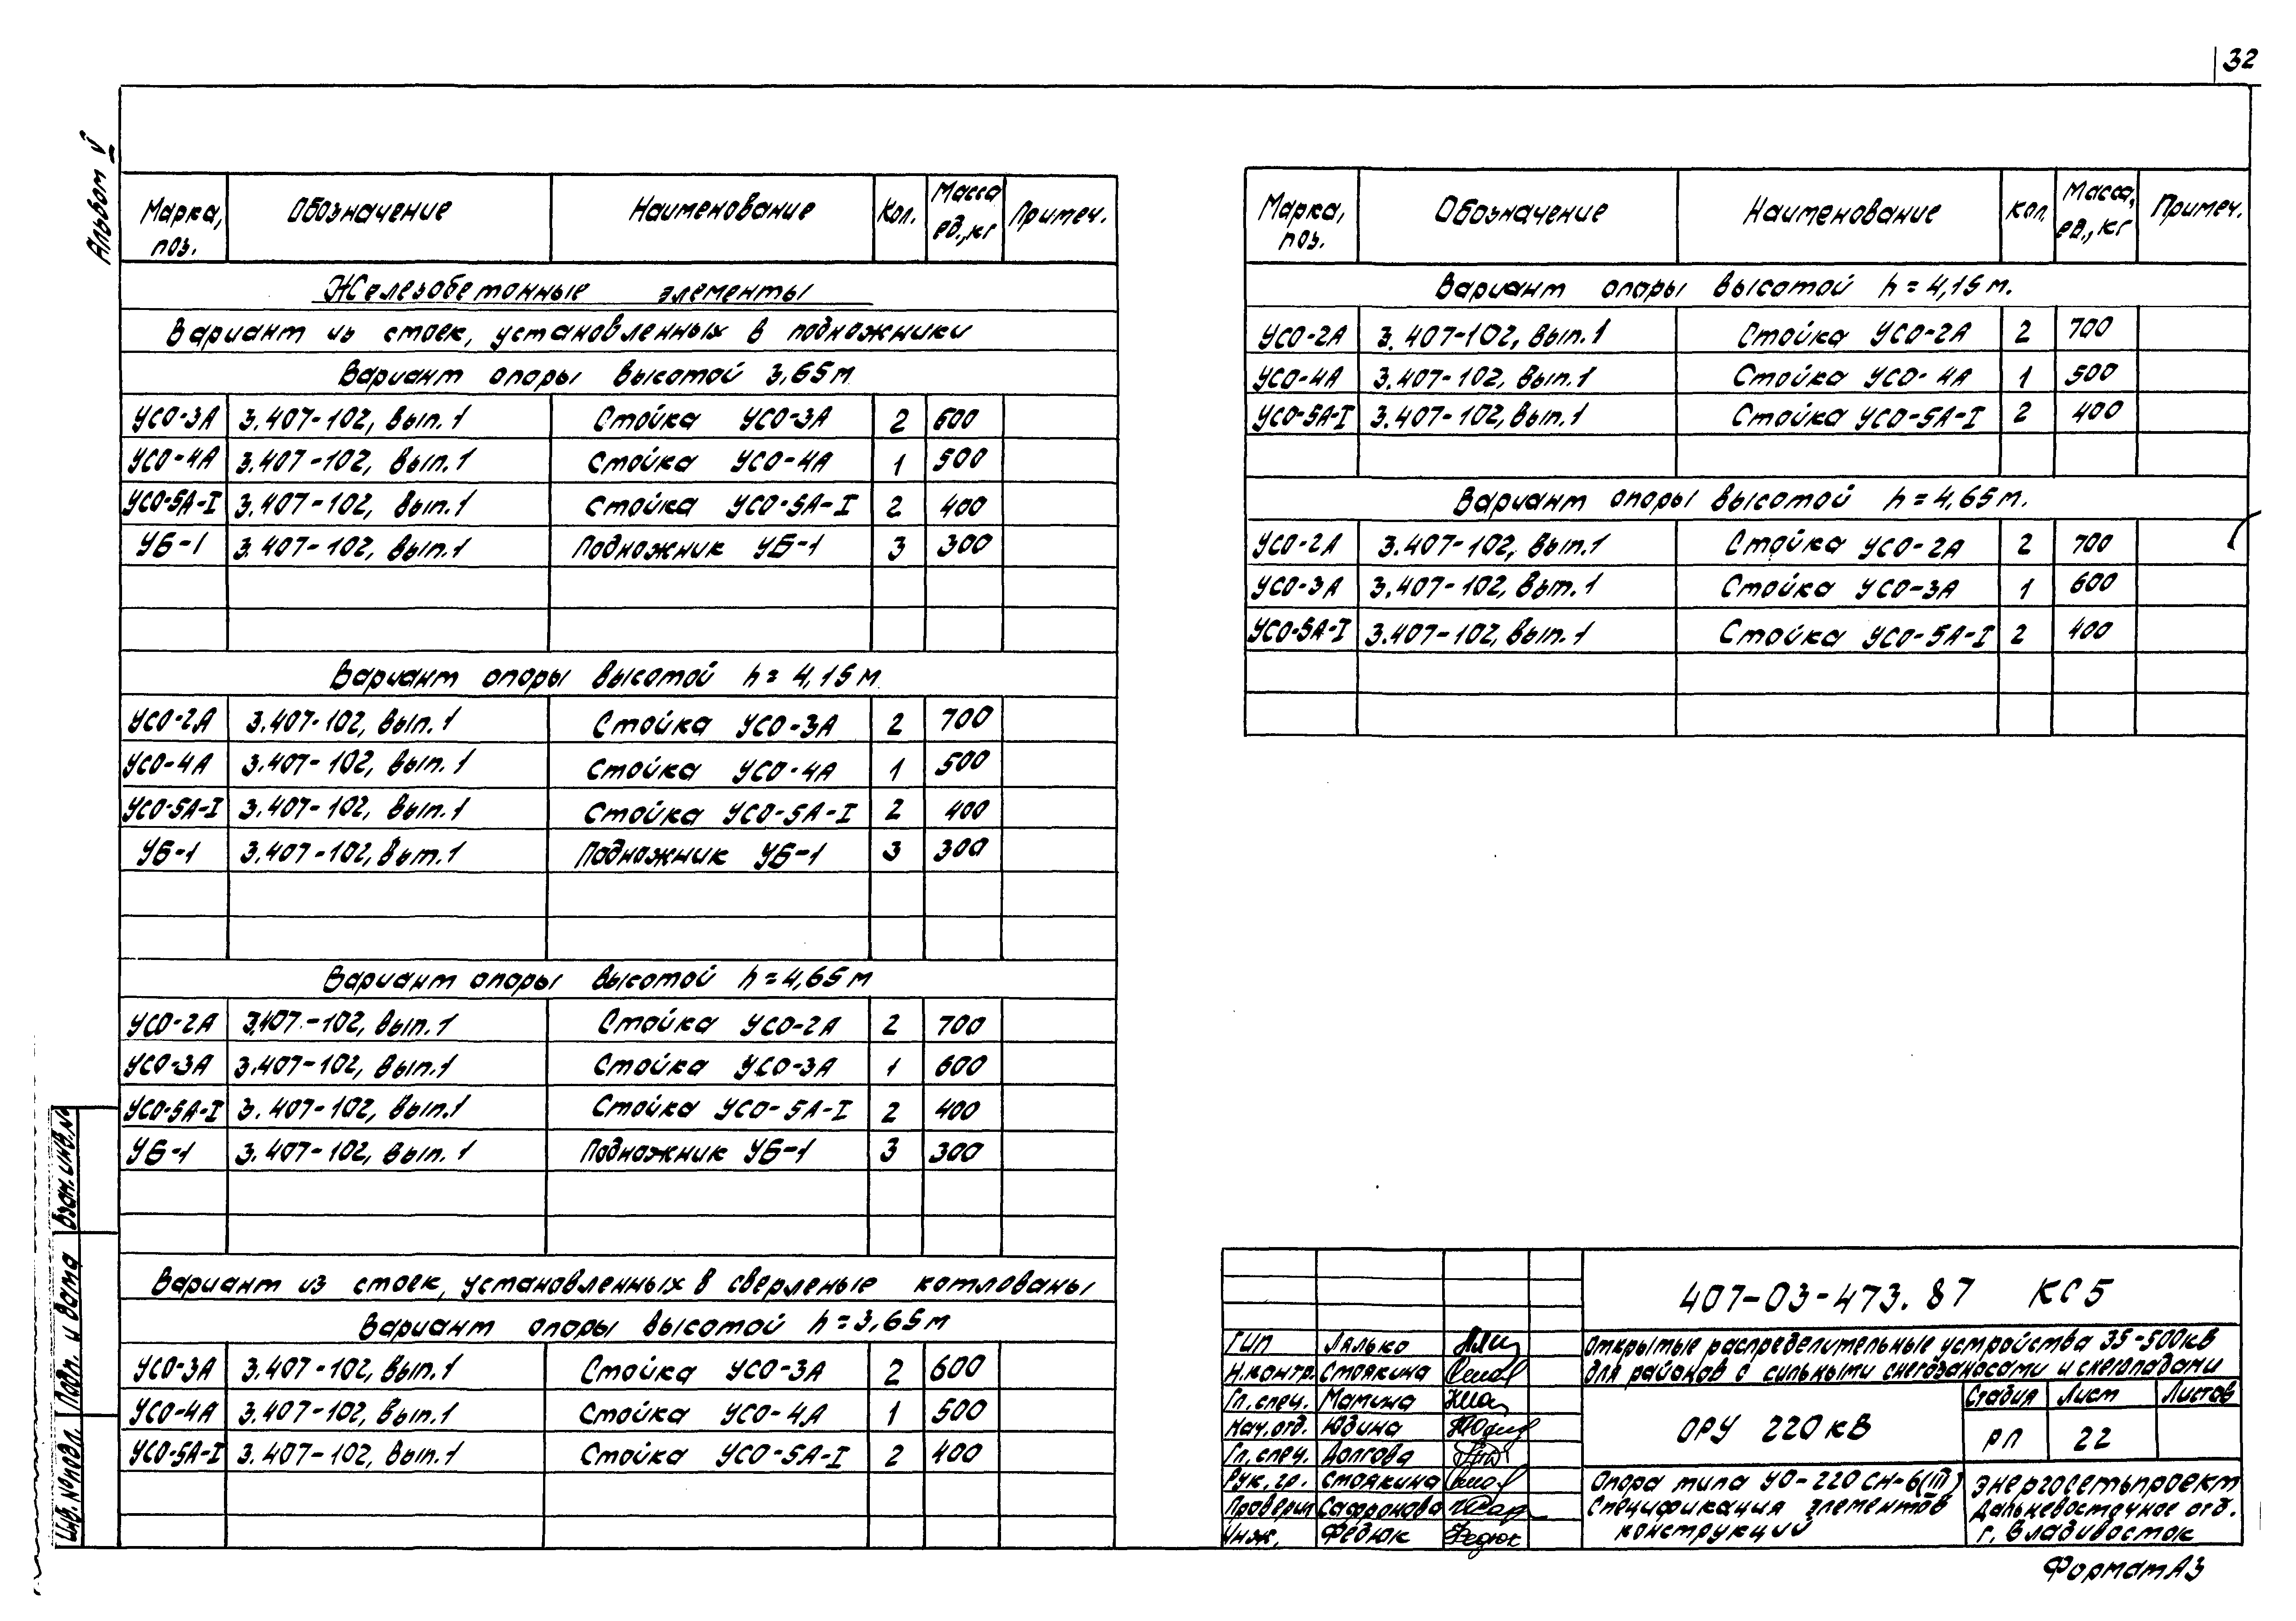 32
Альбом V
Марка, поз. Обозначение Наименование Кол. Масса ед., кг Примеч.
Железобетонные элементы
Вариант из стоек, установленных в подножники
Вариант опоры высотой 3,65 м
УСО-3А 3.407-102, вып. 1 Стойка УСО-3А 2 600
УСО-4А 3.407-102, вып. 1 Стойка УСО-4А 1 500
УСО-5А-I 3.407-102, вып. 1 Стойка УСО-5А-I 2 400
УБ-1 3.407-102, вып. 1 Подножник УБ-1 3 300
Вариант опоры высотой h = 4,15 м
УСО-2А 3.407-102, вып. 1 Стойка УСО-3А 2 700
УСО-4А 3.407-102, вып. 1 Стойка УСО-4А 1 500
УСО-5А-I 3.407-102, вып. 1 Стойка УСО-5А-I 2 400
УБ-1 3.407-102, вып. 1 Подножник УБ-1 3 300
Вариант опоры высотой h = 4,65 м
УСО-2А 3.407-102, вып. 1 Стойка УСО-2А 2 700
УСО-3А 3.407-102, вып. 1 Стойка УСО-3А 1 600
УСО-5А-I 3.407-102, вып. 1 Стойка УСО-5А-I 2 400
УБ-1 3.407-102, вып. 1 Подножник УБ-1 3 300
Вариант из стоек, установленных в сверленые котлованы
Вариант опоры высотой h = 3,65 м
УСО-3А 3.407-102, вып. 1 Стойка УСО-3А 2 600
УСО-4А 3.407-102, вып. 1 Стойка УСО-4А 1 500
УСО-5А-I 3.407-102, вып. 1 Стойка УСО-5А-I 2 400
Марка, поз. Обозначение Наименование Кол. Масса, ед., кг Примеч.
Вариант опоры высотой h = 4,15 м.
УСО-2А 3.407-102, вып. 1 Стойка УСО-2А 2 700
УСО-4А 3.407-102, вып. 1 Стойка УСО-4А 1 500
УСО-5А-I 3.407-102, вып. 1 Стойка УСО-5А-I 2 400
Вариант опоры высотой h = 4,65 м.
УСО-2А 3.407-102, вып. 1 Стойка УСО-2А 2 700
УСО-3А 3.407-102, вып. 1 Стойка УСО-3А 1 600
УСО-5А-I 3.407-102, вып. 1 Стойка УСО-5А-I 2 400
Взам. инв. №
Подп. и дата
Инв. № подл.
407-03-473.87 КС5
ГИП Лялько
Н.контр. Стоякина
Гл. спец. Мамина
Нач. отд. Юдина
Гл. спец. Долгова
Рук. гр. Стоякина
Проверил Сафронова
Инж. Федюк Федюк
Открытые распределительные устройства 35-500кВ
для районов с сильными снегозаносами и снегопадами
ОРУ 220 кВ
Стадия Лист Листов
РП 22
Опора типа УО-220 СН-6(III)
Спецификация элементов
конструкций
Энергосетьпроект
Дальневосточное отд.
г. Владивосток
Формат А3